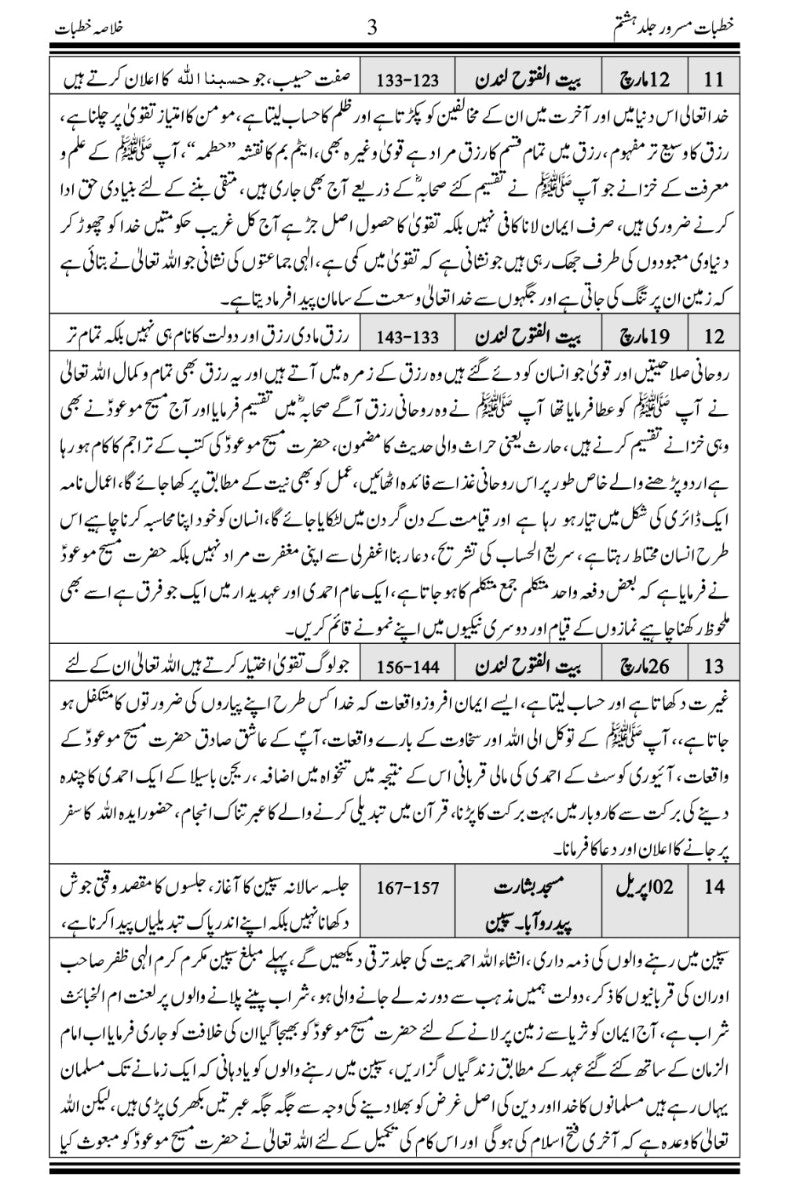 خطبات مسرور جلد ہشتم 3 خلاصہ خطبات
11 12مارچ بیت الفتوح لندن 123-133 صفت حسیب، جو حسبنا اللہ کا اعلان کرتے ہیں
خدا تعالیٰ اس دنیا میں اور آخرت میں ان کے مخالفین کو پکڑتا ہے اور ظلم کا حساب لیتا ہے، مومن کا امتیاز تقویٰ پر چلنا ہے،
رزق کا وسیع تر مفہوم، رزق میں تمام قسم کا رزق مراد ہے قویٰ وغیرہ بھی، ایٹم بم کا نقشہ ”حطمہ“، آپ ﷺ کے علم و
معرفت کے خزانے جو آپ ﷺ نے تقسیم کئے صحابہؓ کے ذریعے آج بھی جاری ہیں، متقی بننے کے لئے بنیادی حق ادا
کرنے ضروری ہیں، صرف ایمان لانا کافی نہیں بلکہ تقویٰ کا حصول اصل جڑ ہے آج کل غریب حکومتیں خدا کو چھوڑ کر
دنیاوی معبودوں کی طرف جھک رہی ہیں جو نشانی ہے کہ تقویٰ میں کمی ہے، الٰہی جماعتوں کی نشانی جو اللہ تعالیٰ نے بتائی ہے
کہ زمین ان پر تنگ کی جاتی ہے اور جگہوں سے خدا تعالیٰ وسعت کے سامان پیدا فرما دیتا ہے۔
12 19مارچ بیت الفتوح لندن 133-143 رزق مادی رزق اور دولت کا نام ہی نہیں بلکہ تمام تر
روحانی صلاحیتیں اور قویٰ جو انسان کو دئے گئے ہیں وہ رزق کے زمرہ میں آتے ہیں اور یہ رزق بھی تمام و کمال اللہ تعالیٰ
نے آپ ﷺ کو عطا فرمایا تھا آپ ﷺ نے وہ روحانی رزق آگے صحابہؓ میں تقسیم فرمایا اور آج مسیح موعودؑ نے بھی
وہی خزانے تقسیم کرنے ہیں، حارث یعنی حراث والی حدیث کا مضمون، حضرت مسیح موعودؑ کی کتب کے تراجم کا کام ہو رہا
ہے اردو پڑھنے والے خاص طور پر اس روحانی غذا سے فائدہ اٹھائیں، عمل کو بھی نیت کے مطابق پرکھا جائے گا، اعمال نامہ
ایک ڈائری کی شکل میں تیار ہو رہا ہے اور قیامت کے دن گردن میں لٹکایا جائے گا، انسان کو خود اپنا محاسبہ کرنا چاہیے اس
طرح انسان محتاط رہتا ہے، سریع الحساب کی تشریح، دعا ربنا اغفرلی سے اپنی مغفرت مراد نہیں بلکہ حضرت مسیح موعودؑ
نے فرمایا ہے کہ بعض دفعہ واحد متکلم جمع متکلم کا ہو جاتا ہے، ایک عام احمدی اور عہدیدار میں ایک جو فرق ہے اسے بھی
ملحوظ رکھنا چاہیے نمازوں کے قیام اور دوسری نیکیوں میں اپنے نمونے قائم کریں۔
13 26مارچ بیت الفتوح لندن 144-156 جو لوگ تقویٰ اختیار کرتے ہیں اللہ تعالیٰ ان کے لئے
غیرت دکھاتا ہے اور حساب لیتا ہے، ایسے ایمان افروز واقعات کہ خدا کس طرح اپنے پیاروں کی ضرورتوں کا متکفل ہو
جاتا ہے،، آپ ﷺ کے توکل الی اللہ اور سخاوت کے بارے واقعات، آپؐ کے عاشق صادق حضرت مسیح موعودؑ کے
واقعات، آئیوری کوسٹ کے احمدی کی مالی قربانی اس کے نتیجہ میں تنخواہ میں اضافہ، ریجن باسیلا کے ایک احمدی کا چندہ
دینے کی برکت سے کاروبار میں بہت برکت کا پڑنا، قرآن میں تبدیلی کرنے والے کا عبرتناک انجام، حضور ایدہ اللہ کا سفر
پر جانے کا اعلان اور دعا کا فرمانا۔
14 02اپریل مسجد بشارت 157-167 جلسہ سالانہ سپین کا آغاز، جلسوں کا مقصد وقتی جوش
پیدروآباد۔ سپین دکھانا نہیں بلکہ اپنے اندر پاک تبدیلیاں پیدا کرنا ہے،
سپین میں رہنے والوں کی ذمہ داری، انشاء اللہ احمدیت کی جلد ترقی دیکھیں گے، پہلے مبلغ سپین مکرم کرم الٰہی ظفر صاحب
اور ان کی قربانیوں کا ذکر، دولت ہمیں مذہب سے دور نہ لے جانے والی ہو، شراب پینے پلانے والوں پر لعنت ام الخبائث
شراب ہے، آج ایمان کو ثریا سے زمین پر لانے کے لئے حضرت مسیح موعودؑ کو بھیجا گیا ان کی خلافت کو جاری فرمایا اب امام
الزمان کے ساتھ کئے گئے عہد کے مطابق زندگیاں گزاریں، سپین میں رہنے والوں کو یاد دہانی کہ ایک زمانے تک مسلمان
یہاں رہے ہیں مسلمانوں کا خدا اور دین کی اصل غرض کو بھلا دینے کی وجہ سے جگہ جگہ عبرتیں بکھری پڑی ہیں، لیکن اللہ
تعالیٰ کا وعدہ ہے کہ آخری فتح اسلام کی ہو گی اور اس کام کی تکمیل کے لئے اللہ تعالیٰ نے حضرت مسیح موعودؑ کو مبعوث کیا